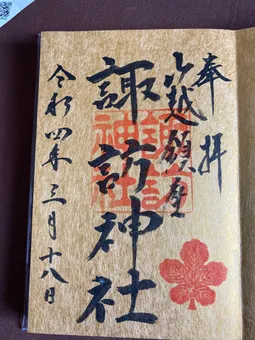 奉拝
越鎮座
諏訪神社
諏訪
神社
令和四年三月十八日